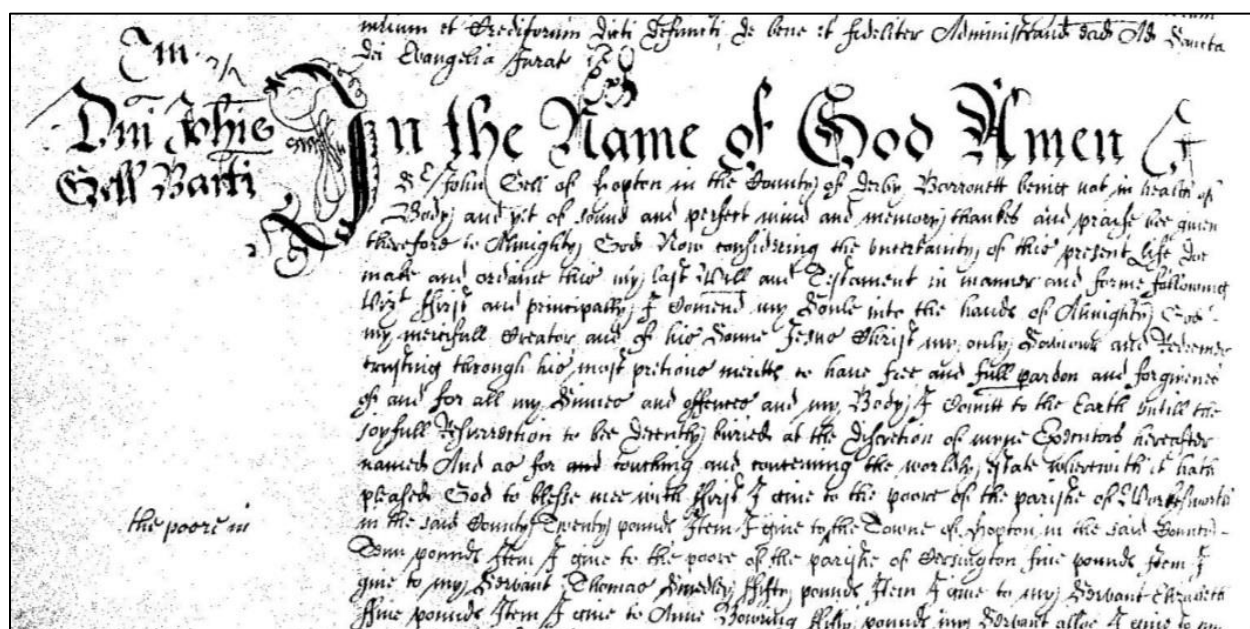 et Creditorum dicti defuncti, de bene et fideliter Administrand ead Ad Sancta
dei Evangelia Jurat
Dni Johis
Gell Barti
In the Name of God Amen I
Sr John Gell of Hopton in the County of Derby Barronett being not in health of
Body and yet of sound and perfect mind and memory thankes and praise bee given
therefore to Almighty God Now considering the uncertainty of this present life doe
make and ordaine this my last Will and Testament in manner and forme following
vizt ffirst and principally I Comend my Soule into the hands of Almighty God
my mercifull Creator and of his Sonne Jesus Christ my only Saviour and Redeemer
trusting through his most pretious meritts to have free and full pardon and forgivenes
of and for all my Sinnes and offences and my Body I Comitt to the Earth untill the
joyfull Resurrection to bee decently buried at the discretion of myne Executors hereafter
named And as for and touching and concerning the worldly estate wherewith it hath
pleased God to blesse mee with ffirst I give to the poore of the parishe of Workesworth
the poore in
in the said County Twenty pounds Item I give to the Towne of Hopton in the said County
Tenn pounds Item I give to the poore of the parishe of Carsington five pounds Item I
give to my Servant Thomas Smedley ffifty pounds Item I give to my Servant Elizabeth
ffive pounds Item I give to Anne ffifty pounds my Servant alsoe I give to my